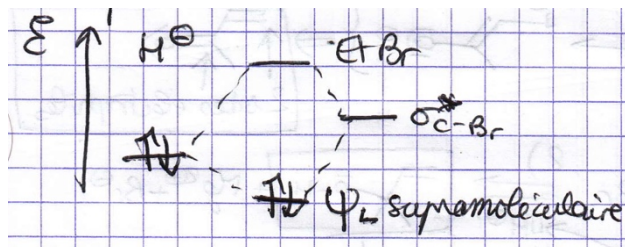 ε H⊖ EtBr
σ*C-Br
ψL supramoléculaire